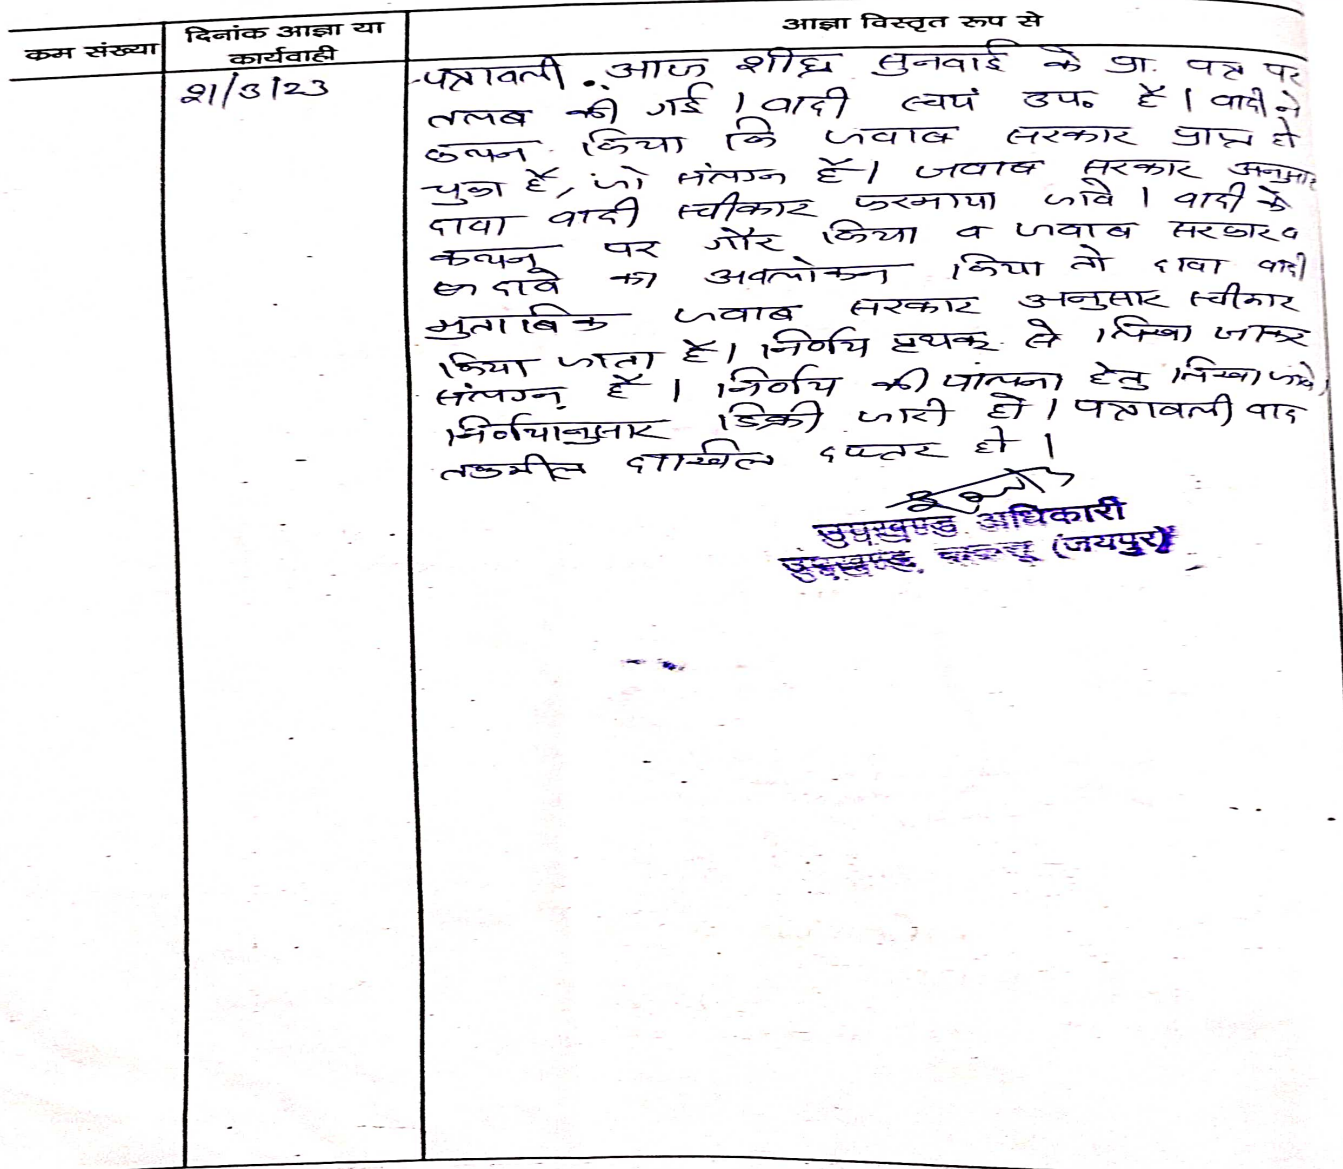 कम संख्या
दिनांक आज्ञा या
कार्यवाही
आज्ञा विस्तृत रूप से
21/3/23
पत्रावली आज शीघ्र सुनवाई के प्रा. पत्र पर
तलब की गई। वादी स्वयं उप. है। वादी ने
कथन किया कि जवाब सरकार प्राप्त हो
चुका है, जो संलग्न है। जवाब सरकार अनुसार
दावा वादी स्वीकार फरमाया जावे। वादी के
कथन पर गौर किया व जवाब सरकार व
दावे का अवलोकन किया तो दावा वादी
मुताबिक जवाब सरकार अनुसार स्वीकार
किया जाता है। निर्णय पृथक से लिखा जाकर
संलग्न है। निर्णय की पालना हेतु लिखा जावे,
निर्णयानुसार डिक्री जारी हो। पत्रावली वाद
तकमील दाखिल दफ्तर हो।
उपखण्ड अधिकारी
उपखण्ड, (जयपुर)